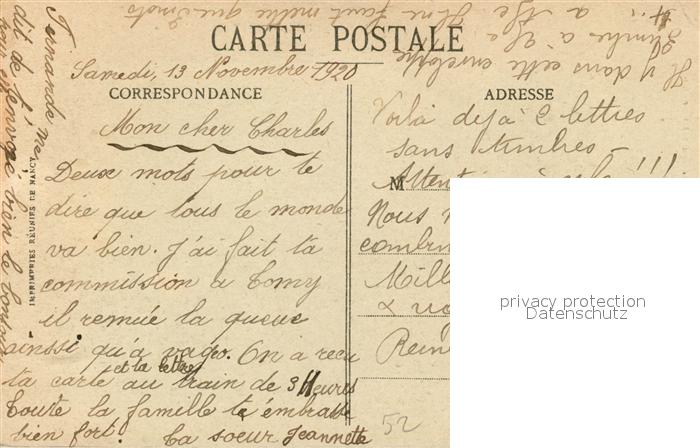 CARTE POSTALE
Samedi, 13 Novembre 1920
CORRESPONDANCE
Mon cher Charles
Deux mots pour te
dire que tous le monde
va bien. J'ai fait ta
commission à Tomy
il remue la queue
ainssi qu'à vago. On a recu
et la lettre
ta carte au train de 3 Heures
Toute la famille te t'embrasse
bien fort. Ta soeur Jeannette
ADRESSE
Voilà dejà 2 lettres
sans timbres -
M
Nous
Mill
52
Fernande me
dit de t'envoyé bien le bonjour
IMPRIMERIES RÉUNIES DE NANCY
Il y dans cette envelope
timbre à
Il ne faut mettre que 5 mots
privacy protection
Datenschutz